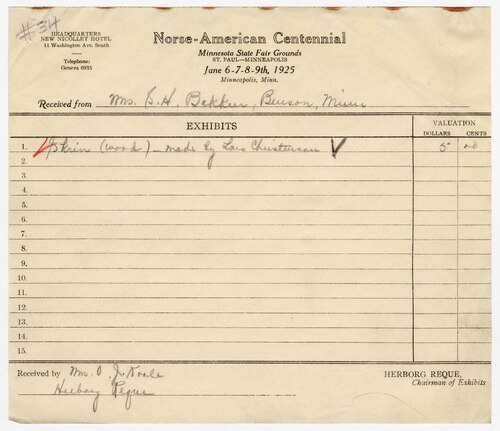 #34
HEADQUARTERS
NEW NICOLLET HOTEL
11 Washington Ave. South
Telephone:
Geneva 6835
Norse-American Centennial
Minnesota State Fair Grounds
ST. PAUL—MINNEAPOLIS
June 6-7-8-9th, 1925
Minneapolis, Minn.
Received from Mrs. S. H. Bakken, Benson, Minn
EXHIBITS
VALUATION
DOLLARS CENTS
1. Skrin (wood) - made by Lars Christenson 5 00
2.
3.
4.
5.
6.
7.
8.
9.
10.
11.
12.
13.
14.
15.
Received by Mrs. O. J.
Herborg Reque
HERBORG REQUE.
Chairman of Exhibits